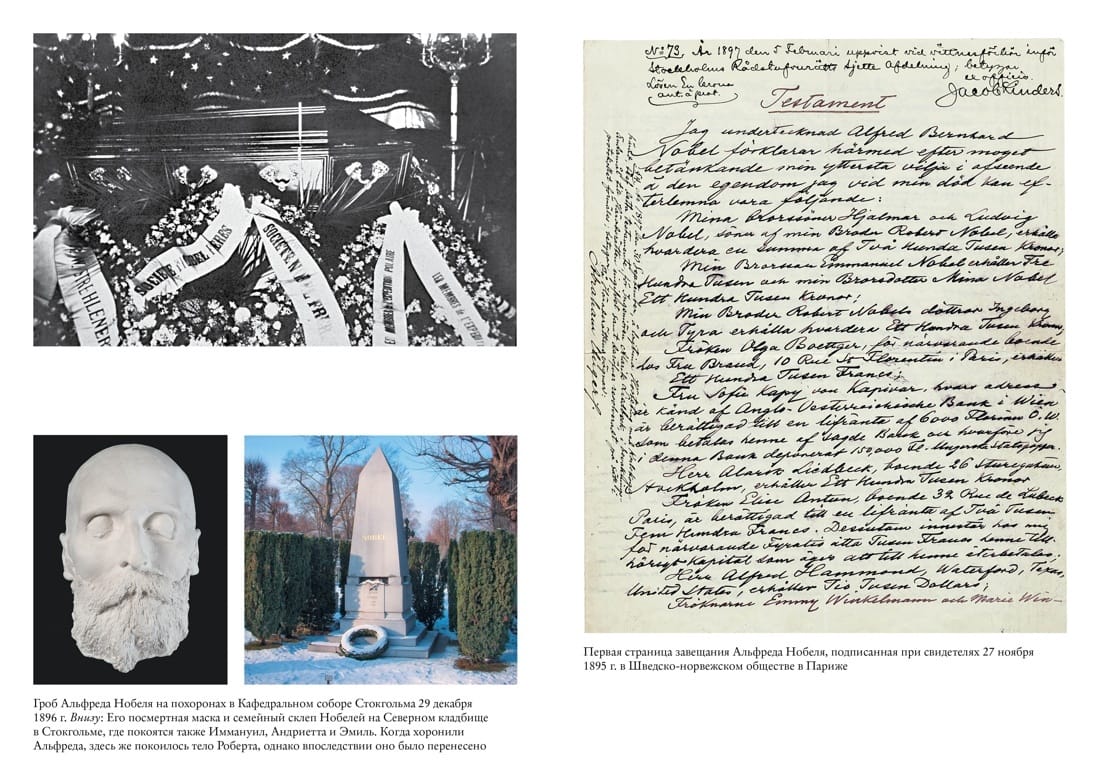 TREHLENER
NOBEL
Гроб Альфреда Нобеля на похоронах в Кафедральном соборе Стокгольма 29 декабря
1896 г. Внизу: Его посмертная маска и семейный склеп Нобелей на Северном кладбище
в Стокгольме, где покоятся также Иммануил, Андриетта и Эмиль. Когда хоронили
Альфреда, здесь же покоилось тело Роберта, однако впоследствии оно было перенесено
No 73. År 1897 den 5 Februari uppvist vid vittnesförhör inför
Stockholms Rådstufvurätts sjette Afdelning; betygar
ex officio.
Lösen En krona
Testament
Jag undertecknad Alfred Bernhard
Nobel förklarar härmed efter moget
betänkande min yttersta vilja i afseende
å den egendom jag vid min död kan ef-
terlemna vara följande:
Mina Brorsöner Hjalmar och Ludvig
Nobel, söner af min Broder Robert Nobel, erhålla
hvardera en summa af Två Hundra Tusen Kronor;
Min Brorson Emmanuel Nobel erhåller Tre
Hundra Tusen och min Brorsdotter Mina Nobel
Ett Hundra Tusen Kronor;
Min Broder Robert Nobels döttrar Ingeborg
och Tyra erhålla hvardera Ett Hundra Tusen Kronor;
Fröken Olga Boettger, för närvarande boende
hos Fru Brand, 10 Rue St Florentin i Paris, erhåller
Ett Hundra Tusen Francs;
Fru Sofie Kapy von Kapivar, hvars adress
är känd af Anglo-Oesterreichische Bank i Wien
är berättigad till en lifränta af 6000 Florins Ö.W.
som betalas henne af sagde Bank och hvarföre jag
i denna Bank deponerat 150,000 Fl.
Herr Alarik Liedbeck, boende 26 Sturegatan,
Stockholm, erhåller Ett Hundra Tusen Kronor
Fröken Elise Antun, boende 32 Rue de Lubeck
Paris, är berättigad till en lifränta af Två Tusen
Fem Hundra Francs. Dessutom innestår hos mig
för närvarande Fyratio åtta Tusen Francs henne till-
hörigt kapital som äger att till henne återbetalas;
Herr Alfred Hammond, Waterford, Texas,
United States, erhåller Tio Tusen Dollars;
Fröknarne Emmy Winkelmann och Marie Win-
Первая страница завещания Альфреда Нобеля, подписанная при свидетелях 27 ноября
1895 г. в Шведско-норвежском обществе в Париже